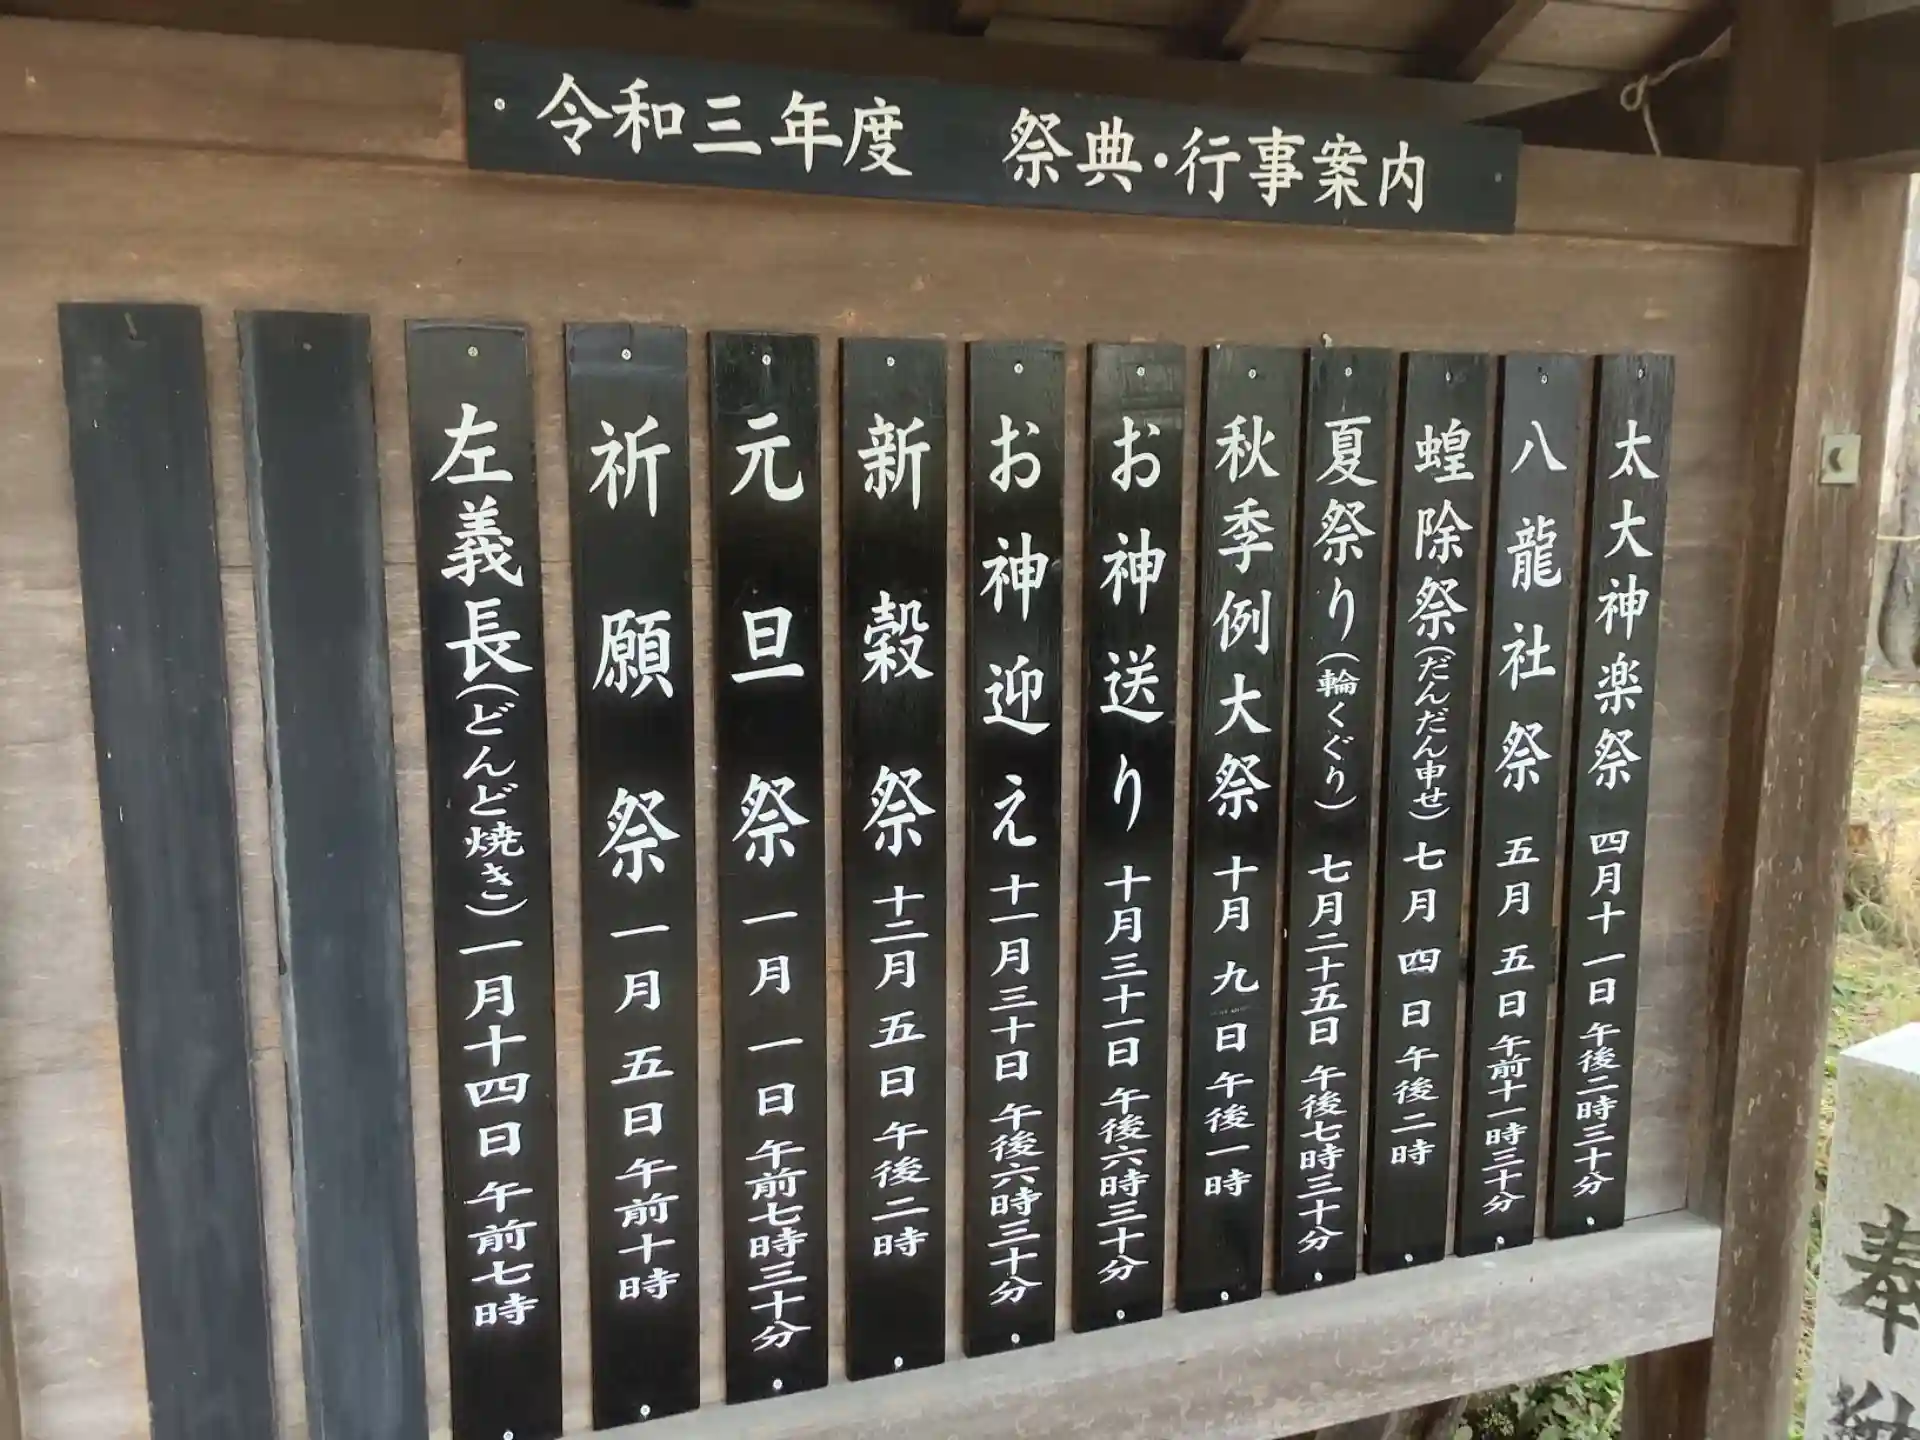 令和三年度　祭典・行事案内
太大神楽祭 四月十一日 午後二時三十分
八龍社祭 五月五日 午前十一時三十分
蝗除祭(だんだん申せ) 七月四日 午後二時
夏祭り(輪くぐり) 七月二十五日 午後七時三十分
秋季例大祭 十月九日 午後一時
お神送り 十月三十一日 午後六時三十分
お神迎え 十一月三十日 午後六時三十分
新穀祭 十二月五日 午後二時
元旦祭 一月一日 午前七時三十分
祈願祭 一月五日 午前十時
左義長(どんど焼き) 一月十四日 午前七時
奉